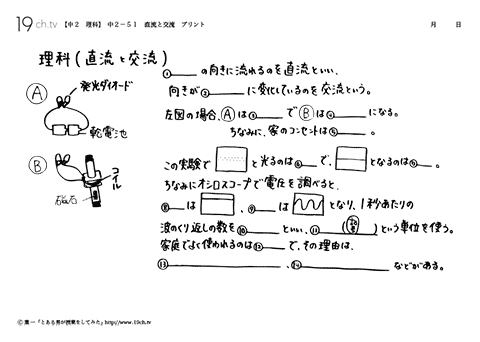 19ch.tv 【中2 理科】 中2-51 直流と交流 プリント 月 日
理科(直流と交流)
①の向きに流れるのを直流といい、
向きが②に変化しているのを交流という。
左図の場合、Ⓐは③でⒷは④になる。
ちなみに、家のコンセントは⑤。
Ⓐ
発光ダイオード
乾電池
Ⓑ
コイル
磁石
この実験で と光るのは⑥で、 となるのは⑦。
ちなみにオシロスコープで電圧を調べると、
⑧は 、⑨は となり、1秒あたりの
波のくり返しの数を⑩といい、⑪(記号 )という単位を使う。
家庭でよく使われるのは⑫で、その理由は、
⑬、⑭などがある。
© 葉一「とある男が授業をしてみた」http://www.19ch.tv